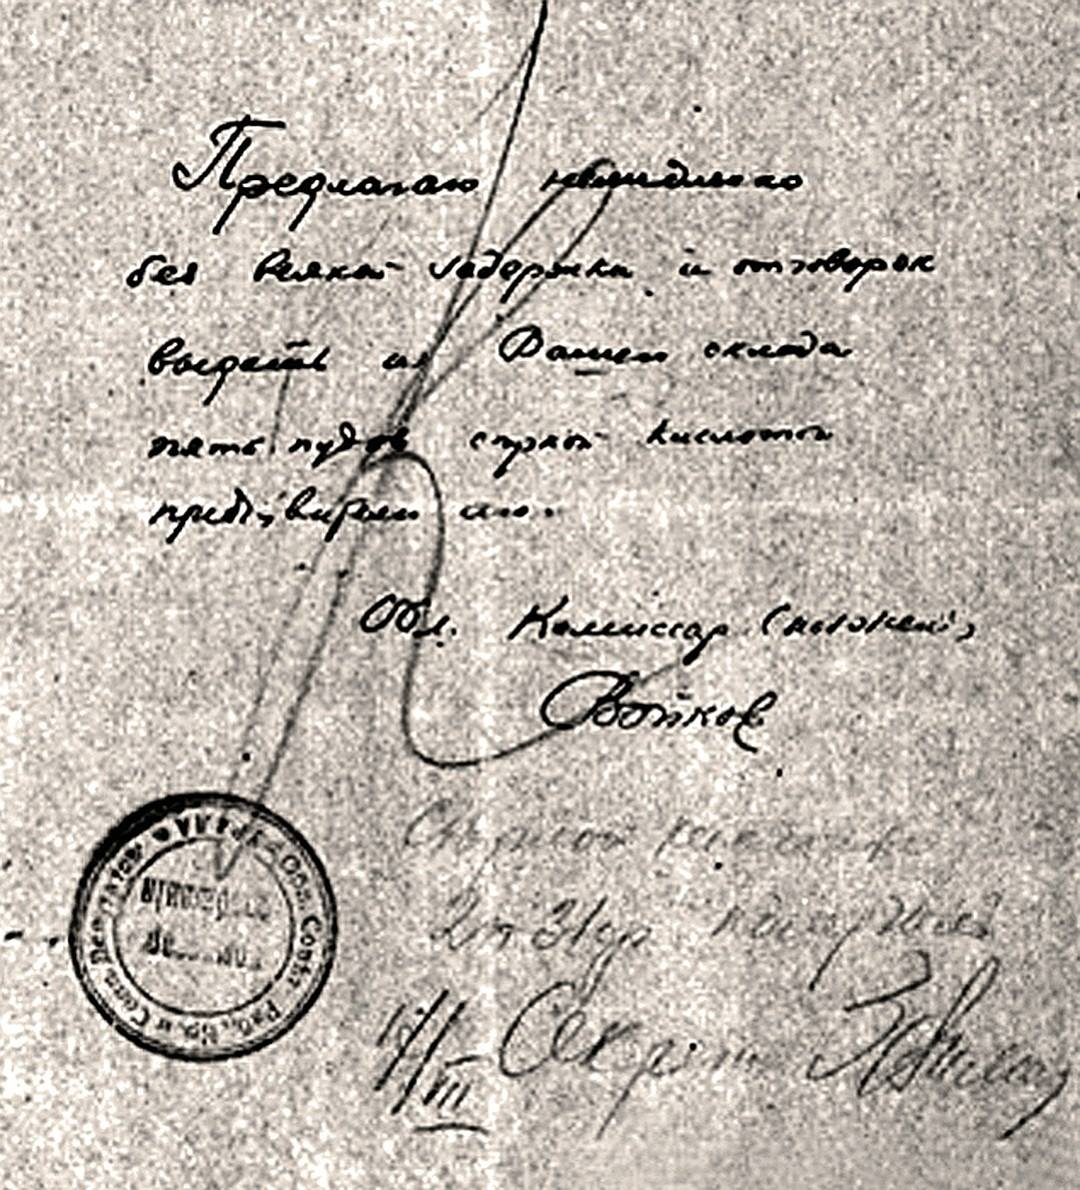 Предлагаю немедленно
без всякой задержки и отговорок
выдать из Вашего склада
пять пудов серной кислоты
предъявителю сего.
Обл. Комиссар Снабжения
Войков
Серной кислоты
2 п 31 ф получил
Секрет
Обл. Совет Раб., Кр. и Солд. Депутатов